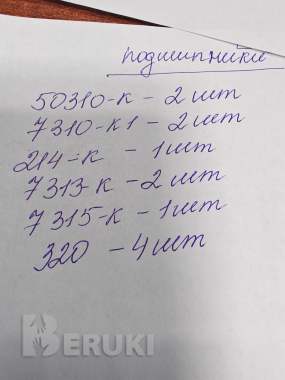 подшипники
50310-к - 2 шт
7310-к1 - 2 шт
214-к - 1 шт
7313-к - 2 шт
7315-к - 1 шт
320 - 4 шт
BERUKI